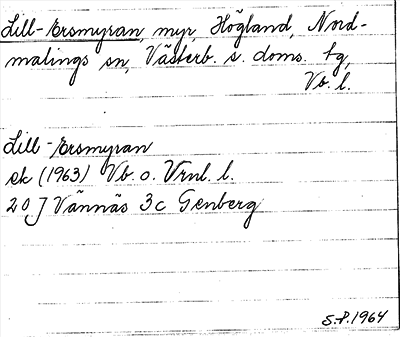 Lill-Ersmyran, myr, Högland, Nord-
malings sn, Västerb. s. doms. tg,
Vb. l.
Lill-Ersmyran
ek (1963) Vb. o. Vrnl. l.
20 J Vännäs 3c Genberg
S.P. 1964